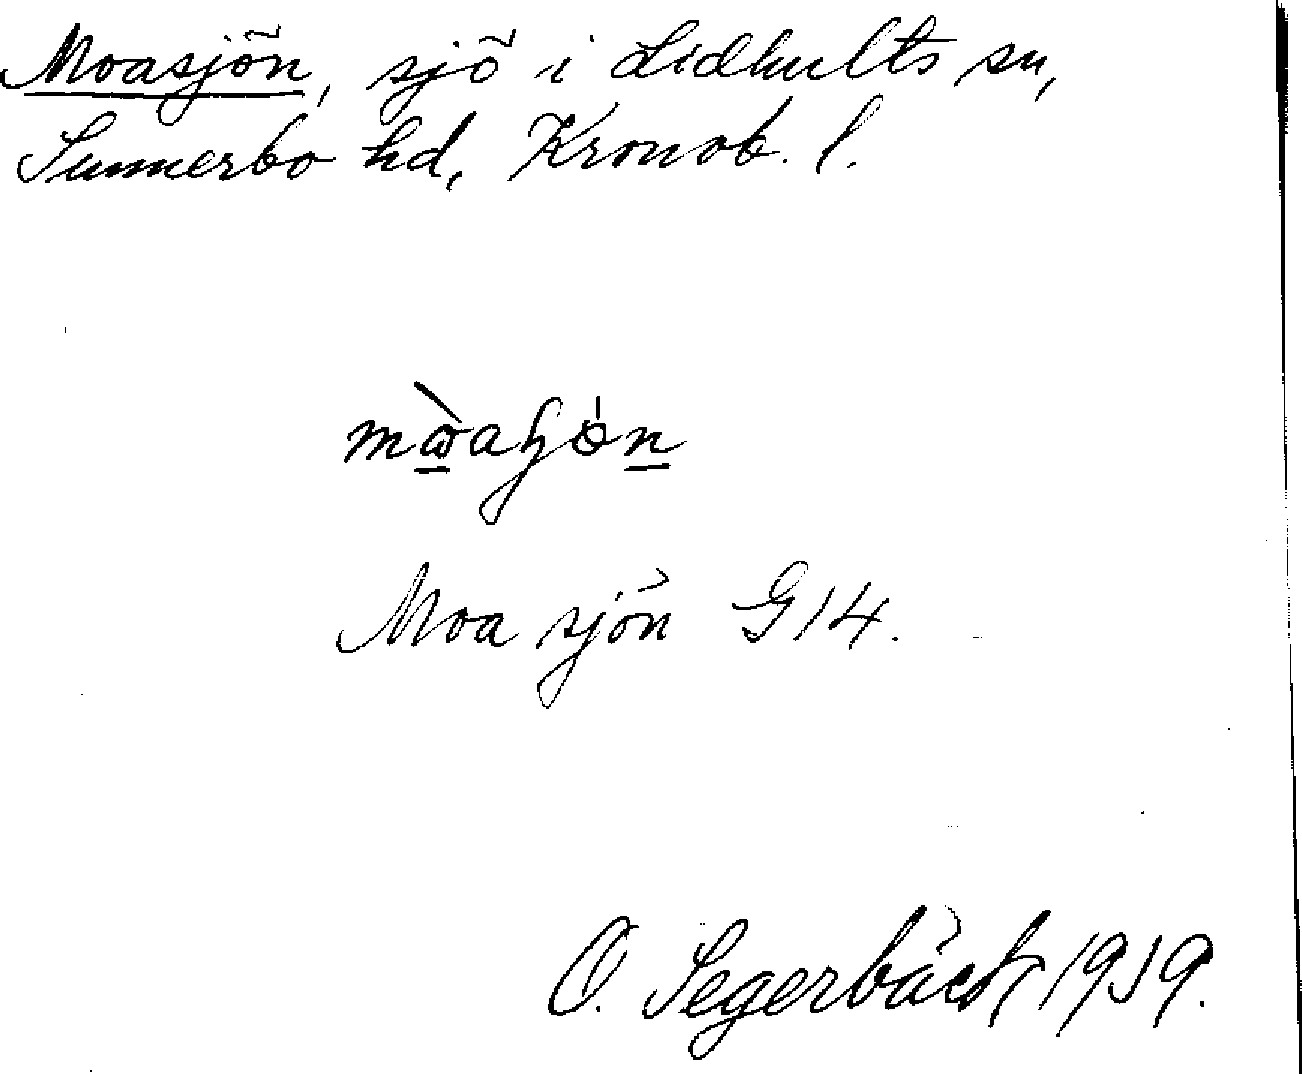 Moasjön, sjö i Lidhults sn,
Sunnerbo hd, Kronob. l.
Moa sjön G14.
O. Segerbäck 1919.